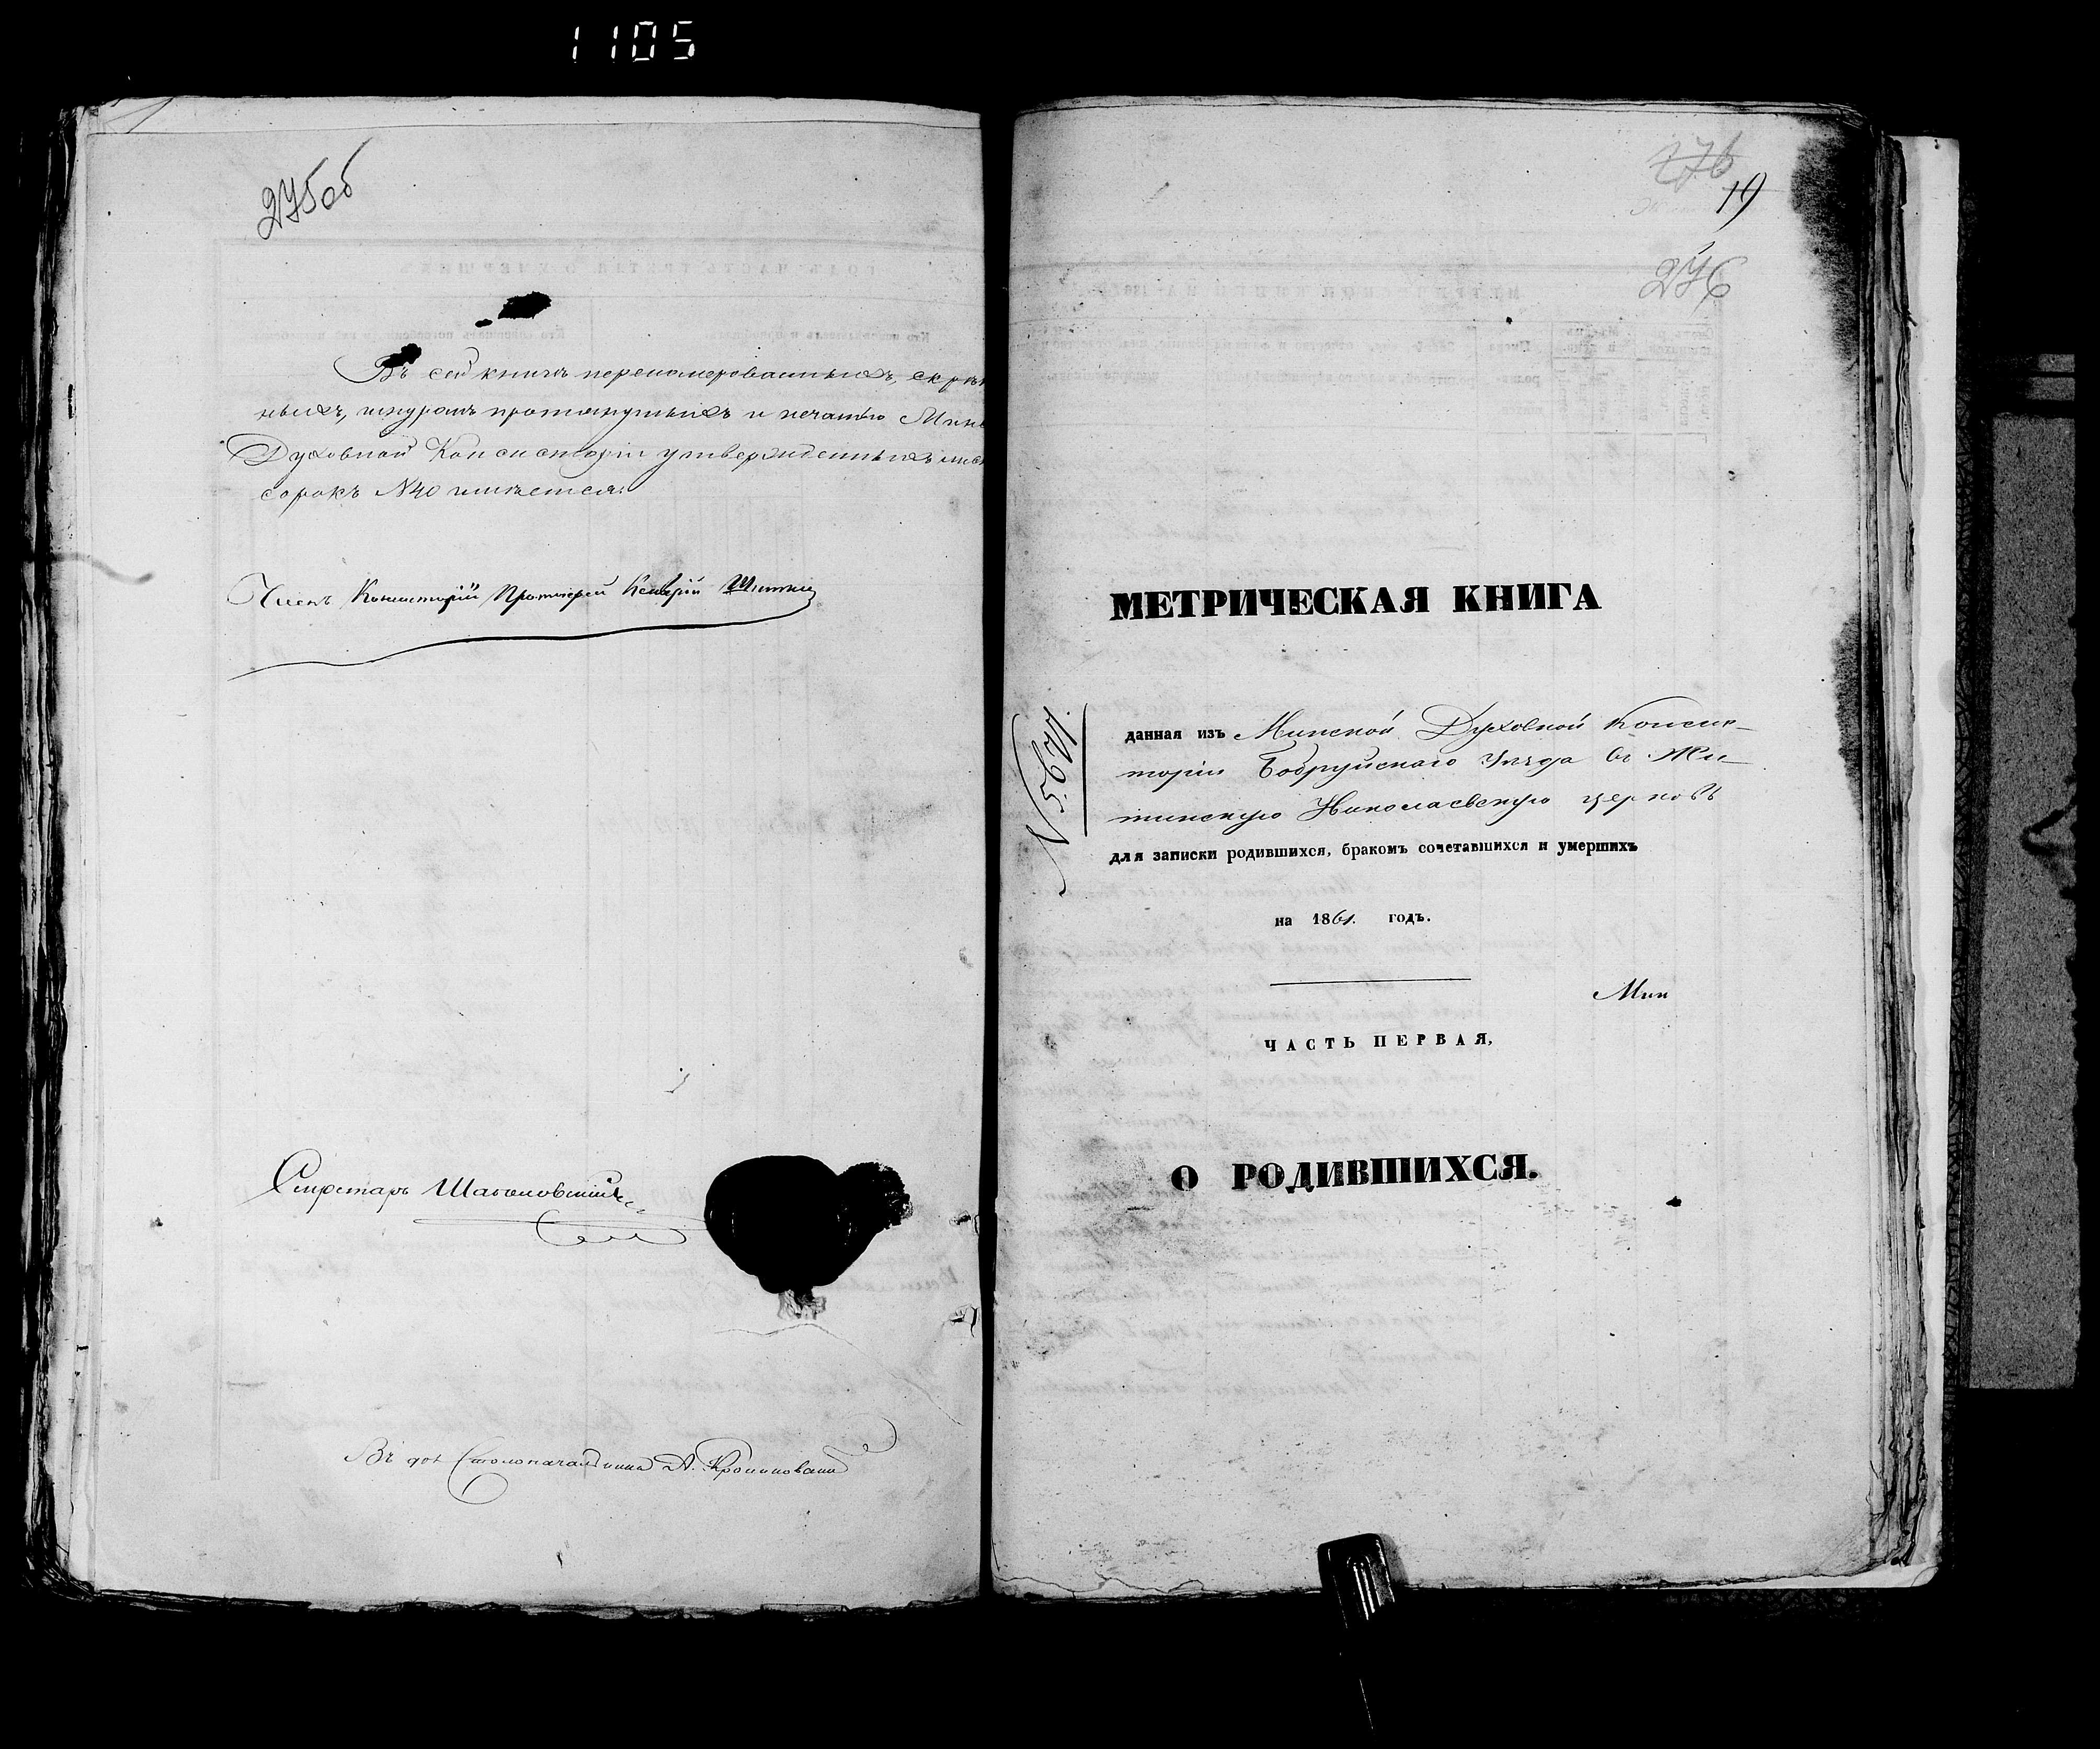 1105
275об
Въ сей книгѣ перенумерованныхъ, скрѣп
ныхъ, шнуромъ протянутыхъ и печатью Минс
Духовной Консисторіи утвержденныхъ лис
сорокъ N40 имѣется.
Членъ Консисторіи Протоіерей
Секретарь
Въ дол Столоначальника А.
276
19
276
МЕТРИЧЕСКАЯ КНИГА
данная изъ Минской Духовной Консис-
торіи Бобруйскаго Уѣзда въ Жи-
тинскую Николаевскую церковь
для записки родившихся, бракомъ сочетавшихся и умершихъ
на 1861. годъ.
Мин
ЧАСТЬ ПЕРВАЯ,
О РОДИВШИХСЯ.